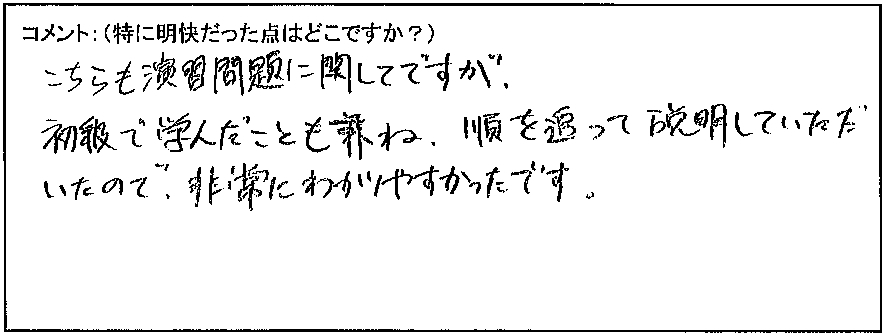 コメント:(特に明快だった点はどこですか?)
こちらも演習問題に関してですが、
初級で学んだことも兼ね、順を追って説明していただ
いたので、非常にわかりやすかったです。